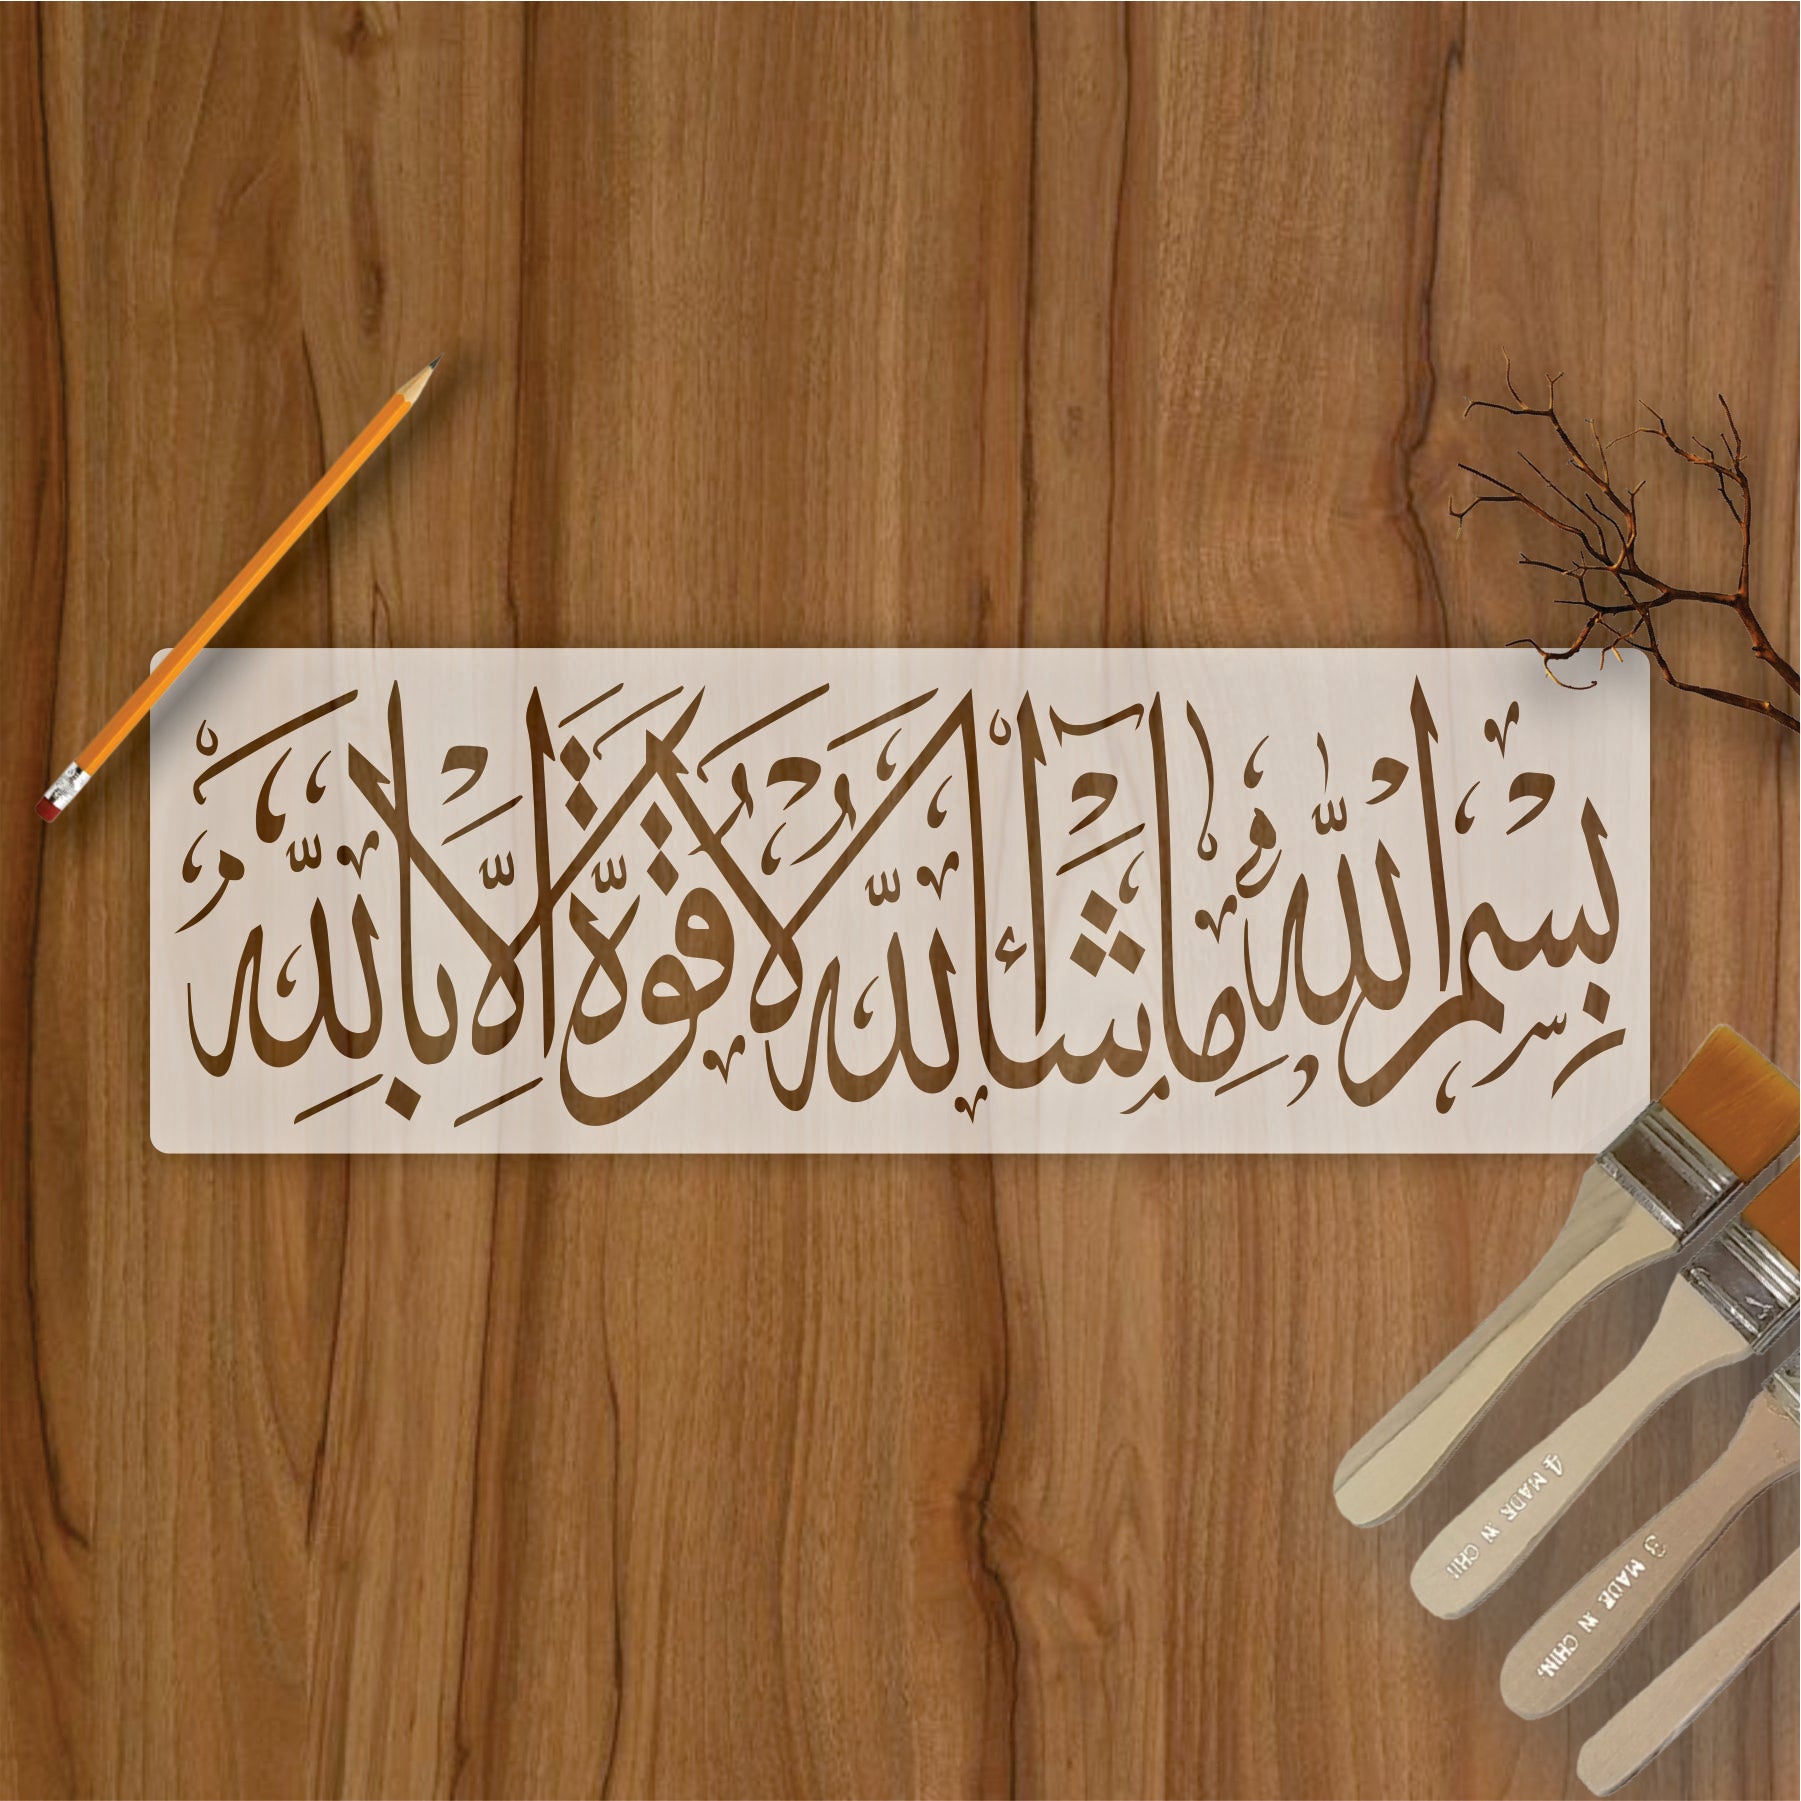 بسم الله ما شاء الله لا قوة إلا بالله
4 MADE IN CHI
3 MADE IN CHIN